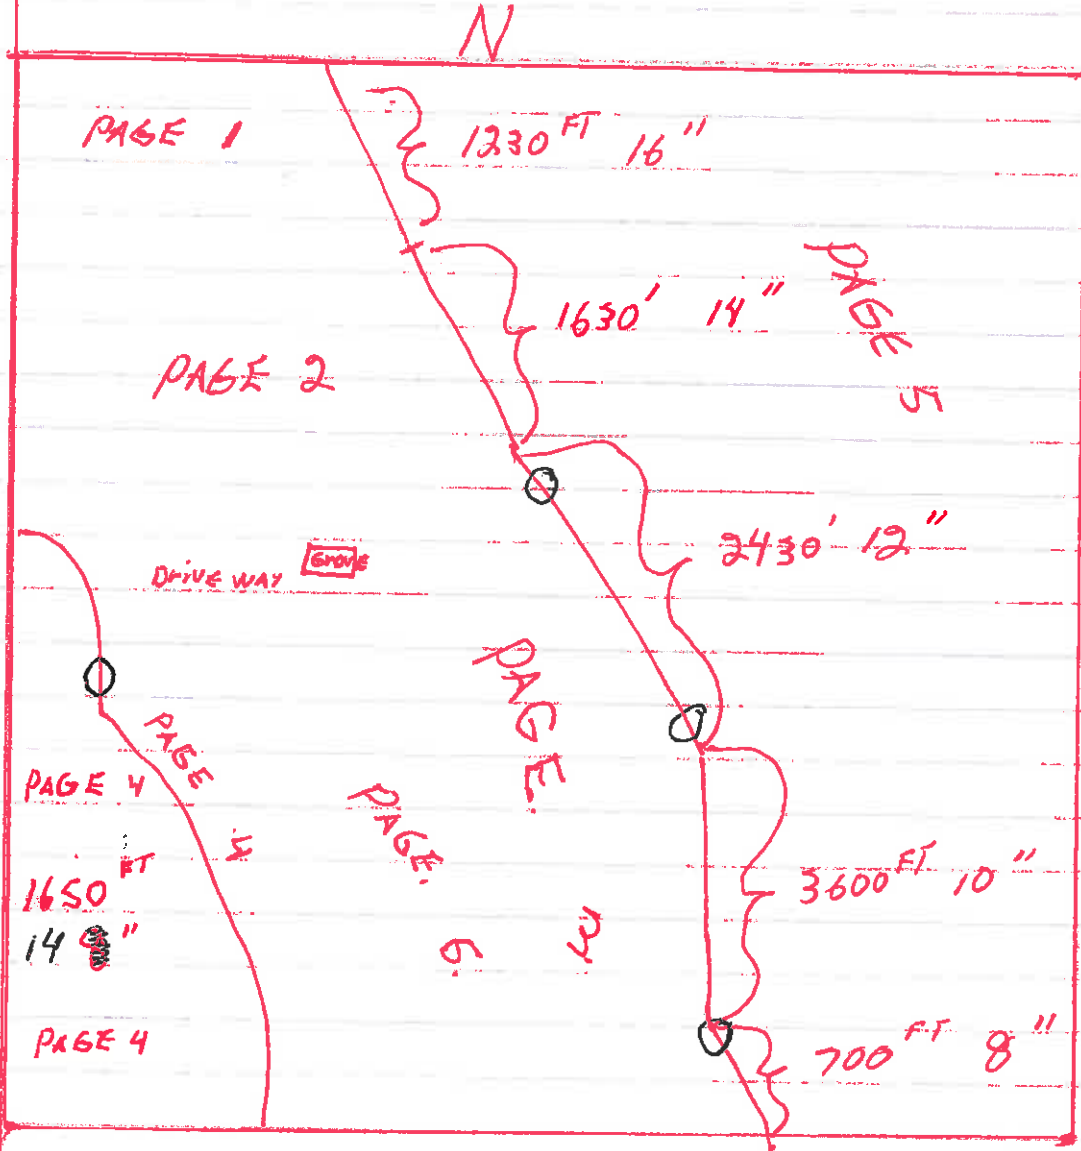 N
PAGE 1
1230 FT 16"
1630' 14"
PAGE 5
PAGE 2
2430' 12"
DRIVE WAY
GROVE
PAGE 3
PAGE 4
PAGE 4
PAGE 6
1650 FT
14"
3600 FT 10"
PAGE 4
700 FT 8"